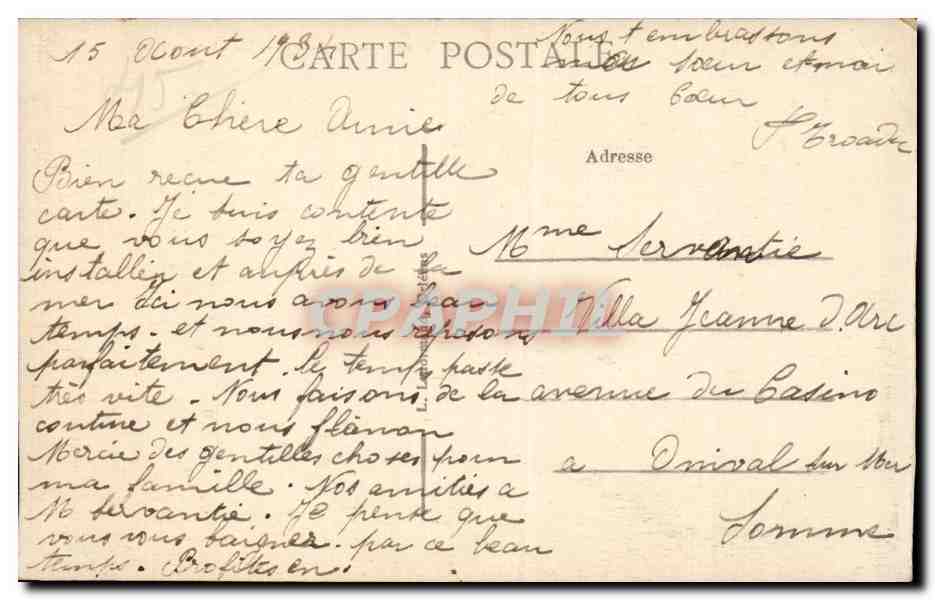 15 Aout 1934
CARTE POSTALE
Ma Chère Amie
Bien reçue ta gentille
carte. Je suis contente
que vous soyez bien
installér et auprès de la
mer Ici nous avons beau
temps. et nous nous reposons
parfaitement. le temps passe
très vite. Nous faisons de la
couture et nous flânon
Mercie des gentilles choses pour
ma famille. Nos amitiés a
M Servantie. Je pense que
vous vous baigner. par ce beau
temps. Profites en.
Nous t'embrassons
ma Sœur et moi
de tous Cœur
Adresse
Mme Servantie
Villa Jeanne d'Arc
avenue du Casino
a Onival sur Mer
Somme
CPAPHIL